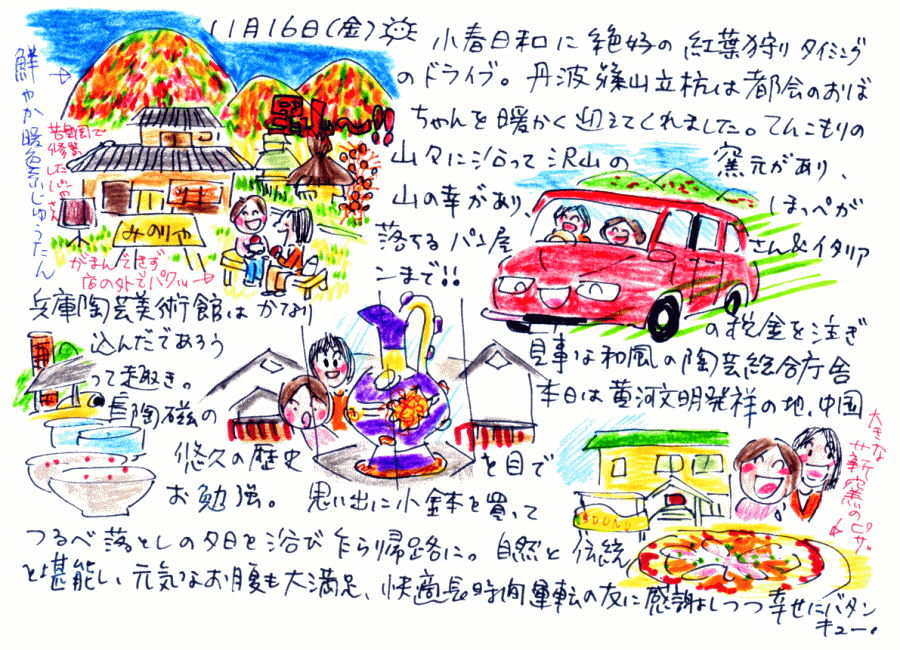 11月16日(金)
小春日和に絶好の紅葉狩りタイミング
のドライブ。丹波篠山立杭は都会のおば
ちゃんを暖かく迎えてくれました。てんこもりの
山々に沿って沢山の窯元があり、
山の幸があり、ほっぺが
落ちるパン屋さん&イタリア
ンまで!!
鮮やか暖色系じゅうたん
で修業したパン屋さん
みのりや
がまんできず
店の外でパクッ
兵庫陶芸美術館はかなり
の税金を注ぎ
込んだであろう
見事な和風の陶芸総合庁舎
って趣き。
本日は黄河文明発祥の地、中国
陶磁の
悠久の歴史
を目で
お勉強。思い出に小鉢を買って
大きな
薪窯のピザ
つるべ落としの夕日を浴び乍ら帰路に。自然と伝統
を堪能し、元気なお腹も大満足、快適長時間運転の友に感謝しつつ幸せにバタン
キュー。